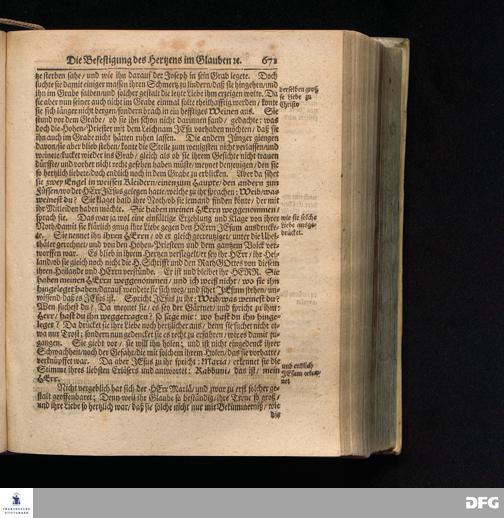 Die Befestigung des Hertzens im Glauben ꝛc. 671
tze sterben sahe/ und wie ihn darauf der Joseph in sein Grab legete. Doch
suchte sie damit einiger massen ihren Schmertz zu lindern/ daß sie hingehen/ und
ihn im Grabe salben/ und solcher gestalt die letzte Liebe ihm erzeigen wolte. Da
sie aber nun seiner auch nicht im Grabe einmal solte theilhafftig werden/ konte
sie sich länger nicht bergen/ sondern brach in ein hefftiges Weinen aus. Sie
stund vor dem Grabe/ ob sie ihn schon nicht darinnen fand/ gedachte: was
doch die Hohen-Priester mit dem Leichnam JEsu vorhaben möchten/ daß sie
ihn auch im Grabe nicht hätten ruhen lassen. Die andern Jünger giengen
davon/ sie aber blieb stehen/ konte die Stelle zum wenigsten nicht verlassen/ und
weinete/ kucket wieder ins Grab/ gleich als ob sie ihrem Gesichte nicht trauen
dürffte/ und vorher nicht recht gesehen haben müste/ meynet denjenigen/ den sie
so hertzlich liebete/ doch endlich noch in dem Grabe zu erblicken. Aber da sihet
sie zwey Engel in weissen Kleidern/ einen zum Haupte/ den andern zun
Füssen/ wo der HErr JEsus gelegen hatte/ welche zu ihr sprachen: Weib/ was
weinest du? Sie klaget bald ihre Noth/ ob sie iemand finden könte/ der mit
ihr Mitleiden haben möchte. Sie haben meinen HErrn weggenommen/
sprach sie. Das war ja wol eine einfältige Erzehlung und Klage von ihrer
Noth/ damit sie klärlich gnug ihre Liebe gegen den HErrn JEsum ausdruck-
te. Sie nennet ihn ihren HErrn/ ob er gleich gecreutziget/ unter die Ubel-
thäter gerechnet/ und von den Hohen-Priestern und dem gantzen Volck ver-
worffen war. Es blieb in ihrem Hertzen versiegelt/ er sey ihr HErr/ ihr Hei-
land/ ob sie gleich noch nicht die H. Schrifft und den Rath GOttes von diesem
ihren Heilande und HErrn verstünde. Er ist und bleibet ihr HERR. Sie
haben meinen HErrn weggenommen/ und ich weiß nicht/ wo sie ihn
hingeleget haben/ darauf wendete sie sich weg/ und sihet JEsum stehen/ un-
wissend/ daß es JEsus ist. Spricht JEsus zu ihr: Weib/ was weinest du?
Wen suchest du? Da meynet sie/ es sey der Gärtner/ und spricht zu ihm:
Herr/ hast du ihn weggetragen? so sage mir: wo hast du ihn hinge-
leget? Da drücket sie ihre Liebe noch hertzlicher aus/ denn sie suchet nicht et-
wa nur Trost/ sondern nun gedencket sie es recht zu erfahren/ wie es damit zu-
gangen. Sie giebt vor/ sie will ihn holen; und ist nicht eingedenck ihrer
Schwachheit/ noch der Gefahr/ die mit solchem ihrem Holen/ das sie vorhatte/
verknüpffet war. Da aber JEsus zu ihr spricht: Maria/ erkennet sie die
Stimme ihres liebsten Erlösers und antwortet: Rabbuni/ das ist/ mein
HErr.
Nicht vergeblich hat sich der HErr Mariä/ und zwar zu erst solcher ge-
stalt geoffenbaret; Denn weil ihr Glaube so beständig/ ihre Treue so groß/
und ihre Liebe so hertzlich war/ daß sie solche nicht nur mit Bekümmerniß/ wie
die
derselben gros-
se Liebe zu
Christo
wie sie solche
Liebe ausge-
drücket.
und endlich
JEsum erken-
net
DFG